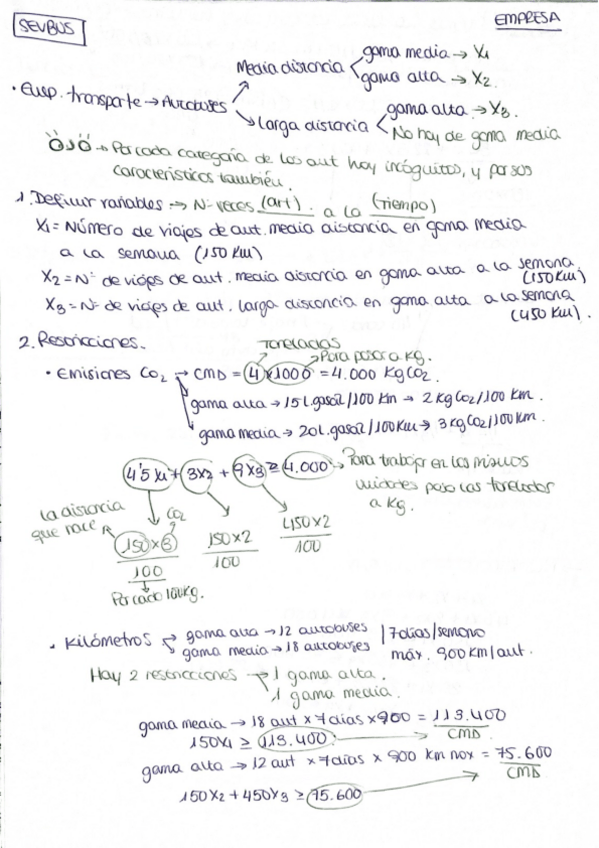 SEVBUS
EMPRESA
Media distancia
gama media → X₁
gama alta → X₂
• Eusp. transporte → Autobuses
Larga distancia
gama alta → X₃
No hay de gama media
OJO → Por cada categoría de los aut hay incógnitas, y por sus
características también.
1. Definir variables → Nº veces (art) a la (tiempo)
X₁ = Número de viajes de aut. media distancia en gama media
a la semana (150 km)
X₂ = Nº de viajes de aut. media distancia en gama alta a la semana
(150 km)
X₃ = Nº de viajes de aut. larga distancia en gama alta a la semana
(450 km).
2. Restricciones.
Toneladas
Para pasar a kg.
• Emisiones CO₂ → CMD = 4 × 1000 = 4.000 Kg CO₂.
gama alta → 15 l. gasoil / 100 km → 2 kg CO₂ / 100 km.
gama media → 20 l. gasoil / 100 km → 3 kg CO₂ / 100 km.
4'5 X₁ + 3X₂ + 9X₃ ≥ 4.000 → Para trabajar en las mismas
unidades paso las toneladas
a kg.
La distancia
que hace
CO₂
150 × 3
100
150 × 2
100
450 × 2
100
Por cada 100kg.
• Kilómetros
gama alta → 12 autobuses
gama media → 18 autobuses
7 días/semana
máx. 900 km/aut.
Hay 2 restricciones
1 gama alta.
1 gama media.
gama media → 18 aut × 7 días × 900 = 113.400
CMD
150X₁ ≥ 113.400
gama alta → 12 aut × 7 días × 900 km max = 75.600
CMD
150X₂ + 450X₃ ≥ 75.600